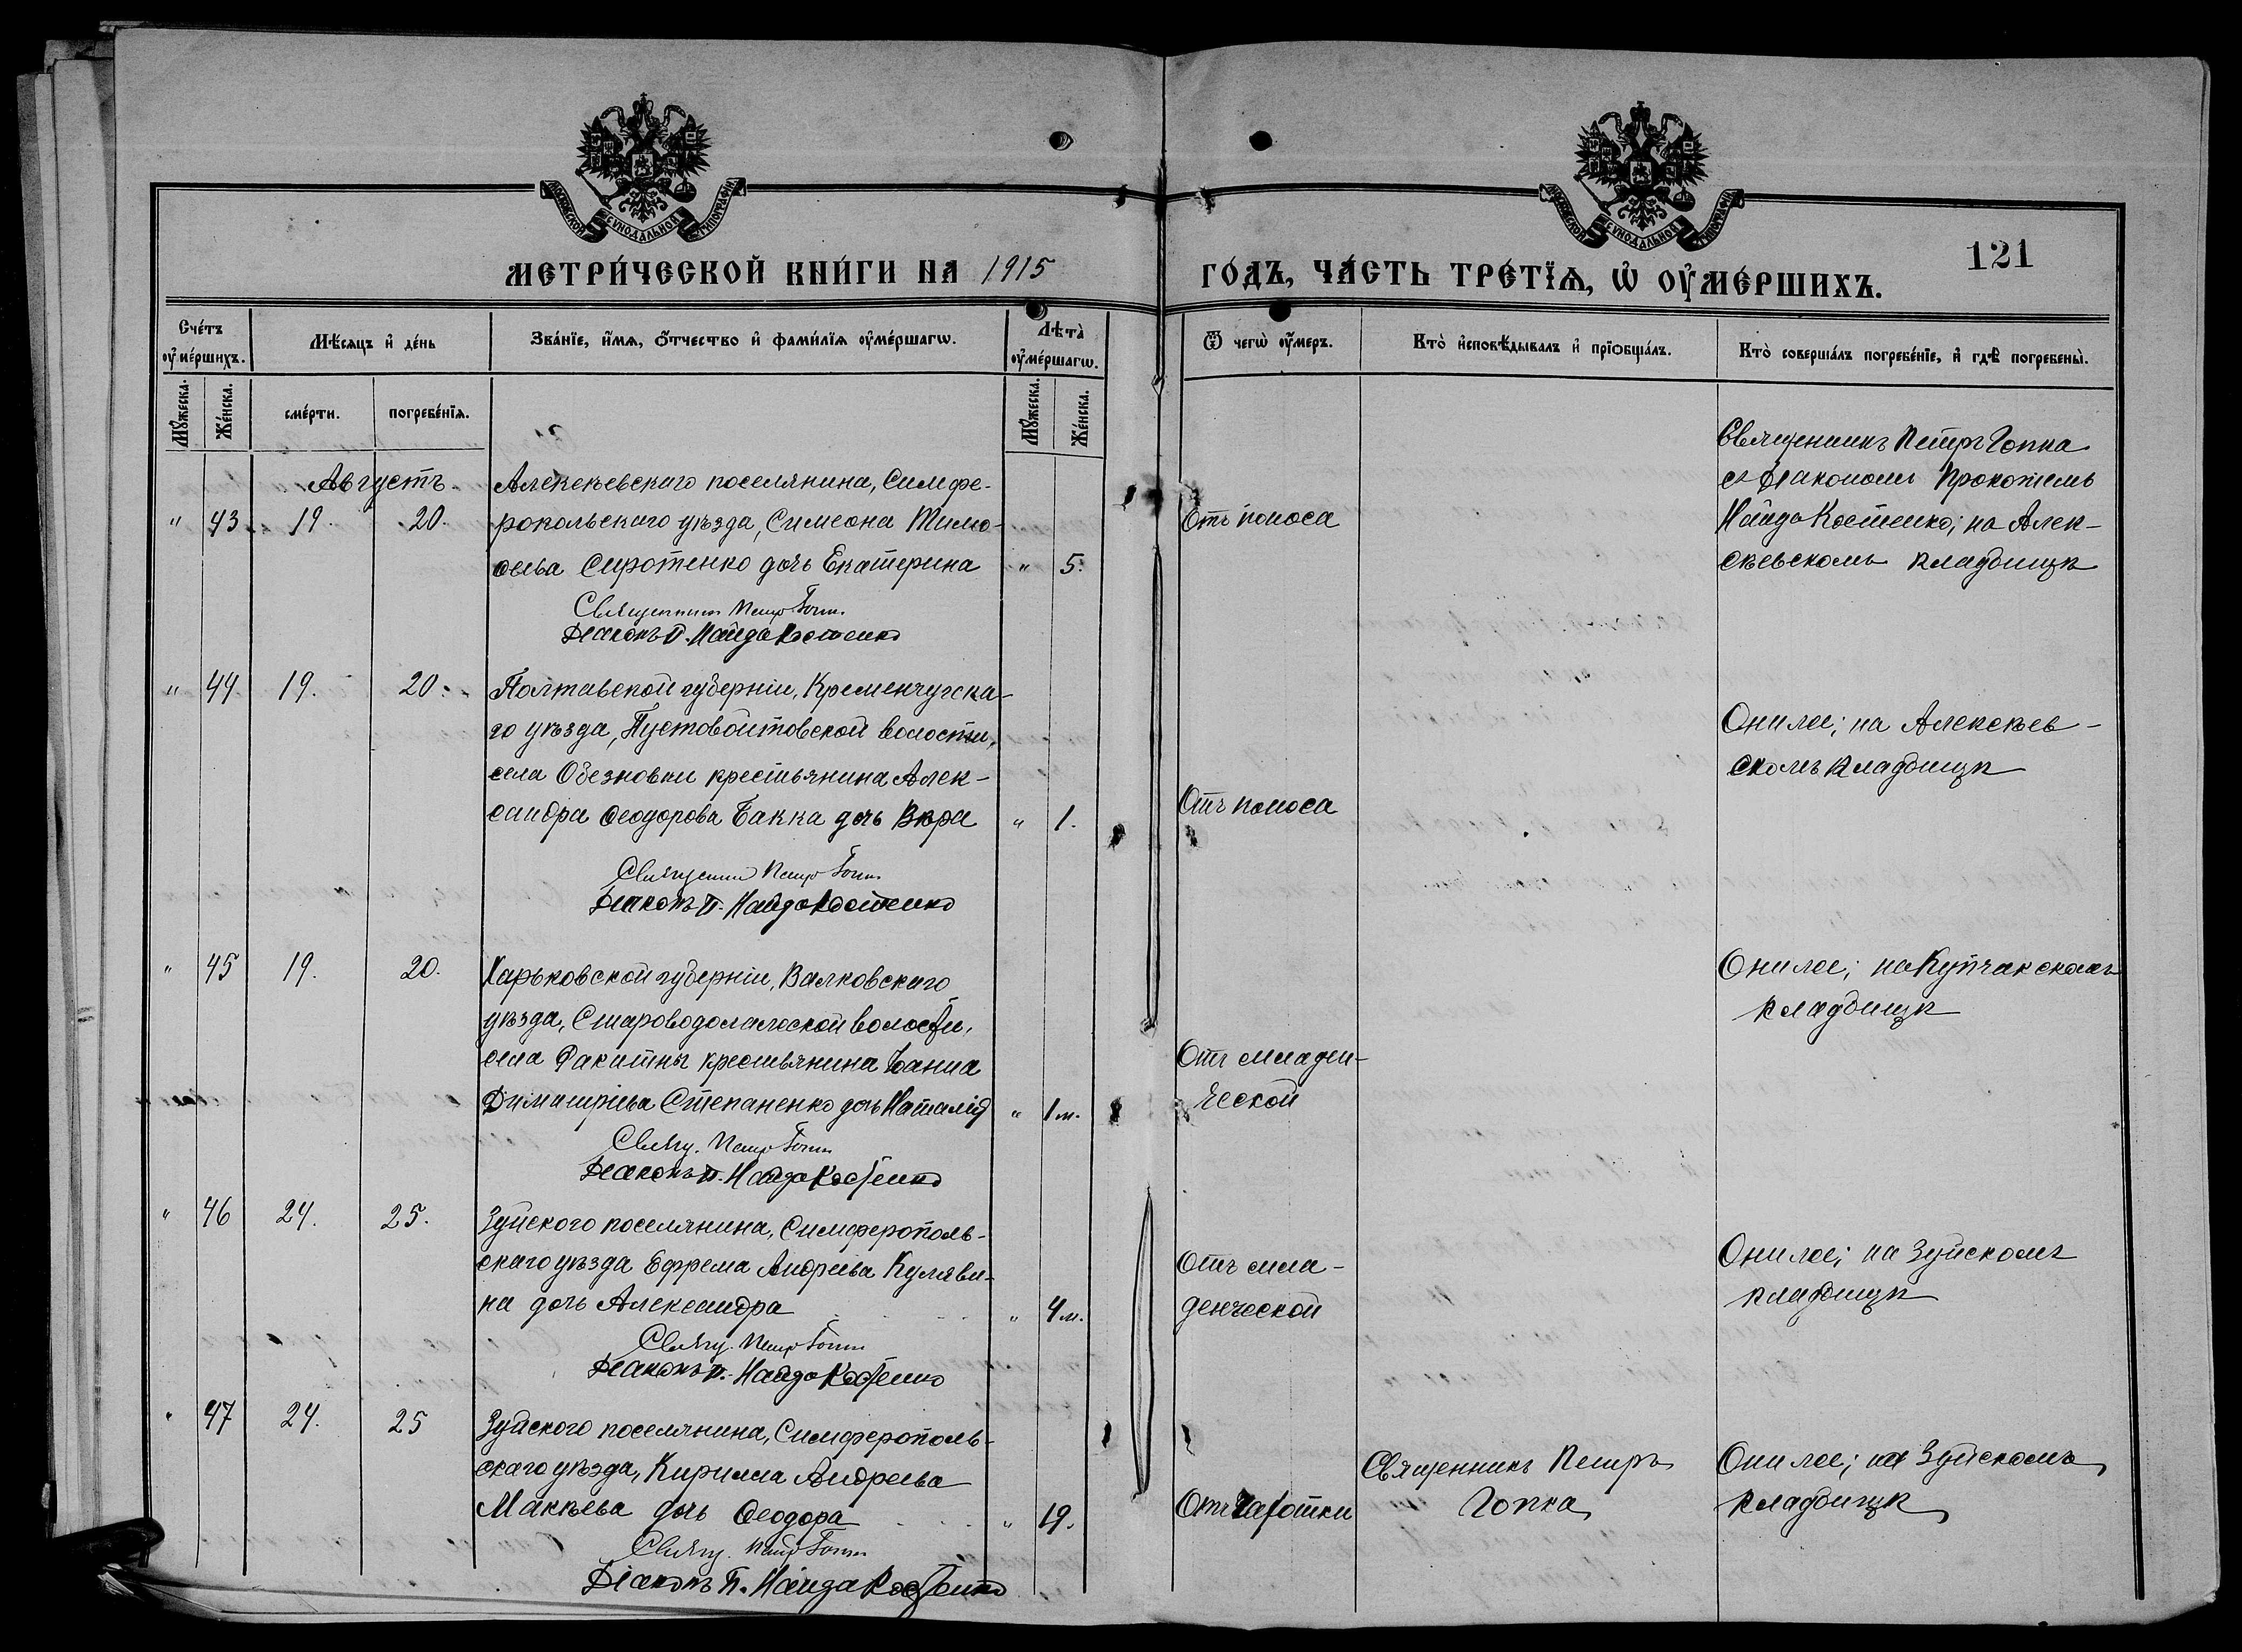 МОСКОВСКОЙ СѴНОДАЛЬНОЙ ТИПОГРАФІИ
МОСКОВСКОЙ СѴНОДАЛЬНОЙ ТИПОГРАФІИ
МЕТРИ́ЧЕСКОЙ КНИ́ГИ НА 1915
ГО́ДЪ, ЧА́СТЬ ТРЕ́ТЇѦ, Ѡ҆ ОУ҆МЕ́РШИХЪ.
121
Сче́тъ оу҆ме́ршихъ.
Мѣ́сѧцъ и҆ де́нь
Зва́нїе, и҆́мѧ, ѻ҆́тчество и҆ фами́лїѧ оу҆ме́ршагѡ.
Лѣ̀та оу҆ме́ршагѡ.
Ѿ чегѡ̀ оу҆́меръ.
Кто̀ и҆сповѣ́дывалъ и҆ прїѡбща́лъ.
Кто̀ соверша́лъ погребе́нїе, и҆ гдѣ̀ погребены̀.
Мꙋ́жеска.
Же́нска.
сме́рти.
погребе́нїѧ.
Мꙋ́жеска.
Же́нска.
Августъ
" 43 19. 20.
Алексѣевскаго поселянина, Симфе-
ропольскаго уѣзда, Симеона Тимо-
ѳеева Сиротенко дочь Екатерина " 5.
Священникъ Петръ Гопка
Діаконъ П. Найда Костенко
Отъ поноса
Священникъ Петръ Гопка
съ діакономъ Прокопіемъ
Найда Костенко; на Алек-
сѣевскомъ кладбищѣ
" 44 19. 20.
Полтавской губерніи, Кременчугска-
го уѣзда, Пустовойтовской волости,
села Обезновки крестьянина Алек-
сандра Ѳеодорова Бакка дочь Вѣра " 1.
Священникъ Петръ Гопка
Діаконъ П. Найда Костенко
Отъ поноса
Они же; на Алексѣев-
скомъ кладбищѣ
" 45 19. 20.
Харьковской губерніи, Валковскаго
уѣзда, Староводолажской волости,
села Ракитны крестьянина
Димитріева Степаненко дочь Наталія " 1 м.
Свящ. Петръ Гопка
Діаконъ П. Найда Костенко
Отъ младен-
ческой
Они же; на Купчакскомъ
кладбищѣ
" 46 24. 25.
Зуйского поселянина, Симферополь-
скаго уѣзда Ефрема Андреева Куляви-
на дочь Александра " 4 м.
Свящ. Петръ Гопка
Діаконъ П. Найда Костенко
Отъ мла-
денческой
Они же; на Зуйскомъ
кладбищѣ
" 47 24. 25
Зуйского поселянина, Симферополь-
скаго уѣзда, Кирилла Андреева
Макѣева дочь Ѳеодора " 19.
Свящ. Петръ Гопка
Діаконъ П. Найда Костенко
Отъ чахотки
Священникъ Петръ
Гопка
Они же; на Зуйскомъ
кладбищѣ